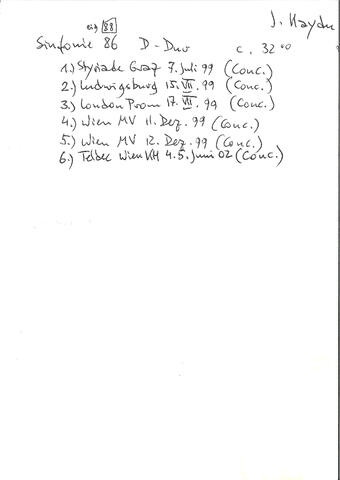 J. Haydn
88
Sinfonie 86 D-Dur c. 32'00
1.) Styriade Graz 7. Juli 99 (Conc.)
2.) Ludwigsburg 15. VII. 99 (Conc.)
3.) London Prom 17. VII. 99 (Conc.)
4.) Wien MV 11. Dez. 99 (Conc.)
5.) Wien MV 12. Dez. 99 (Conc.)
6.) Teldec Wien KH 4.5. Juni 02 (Conc.)